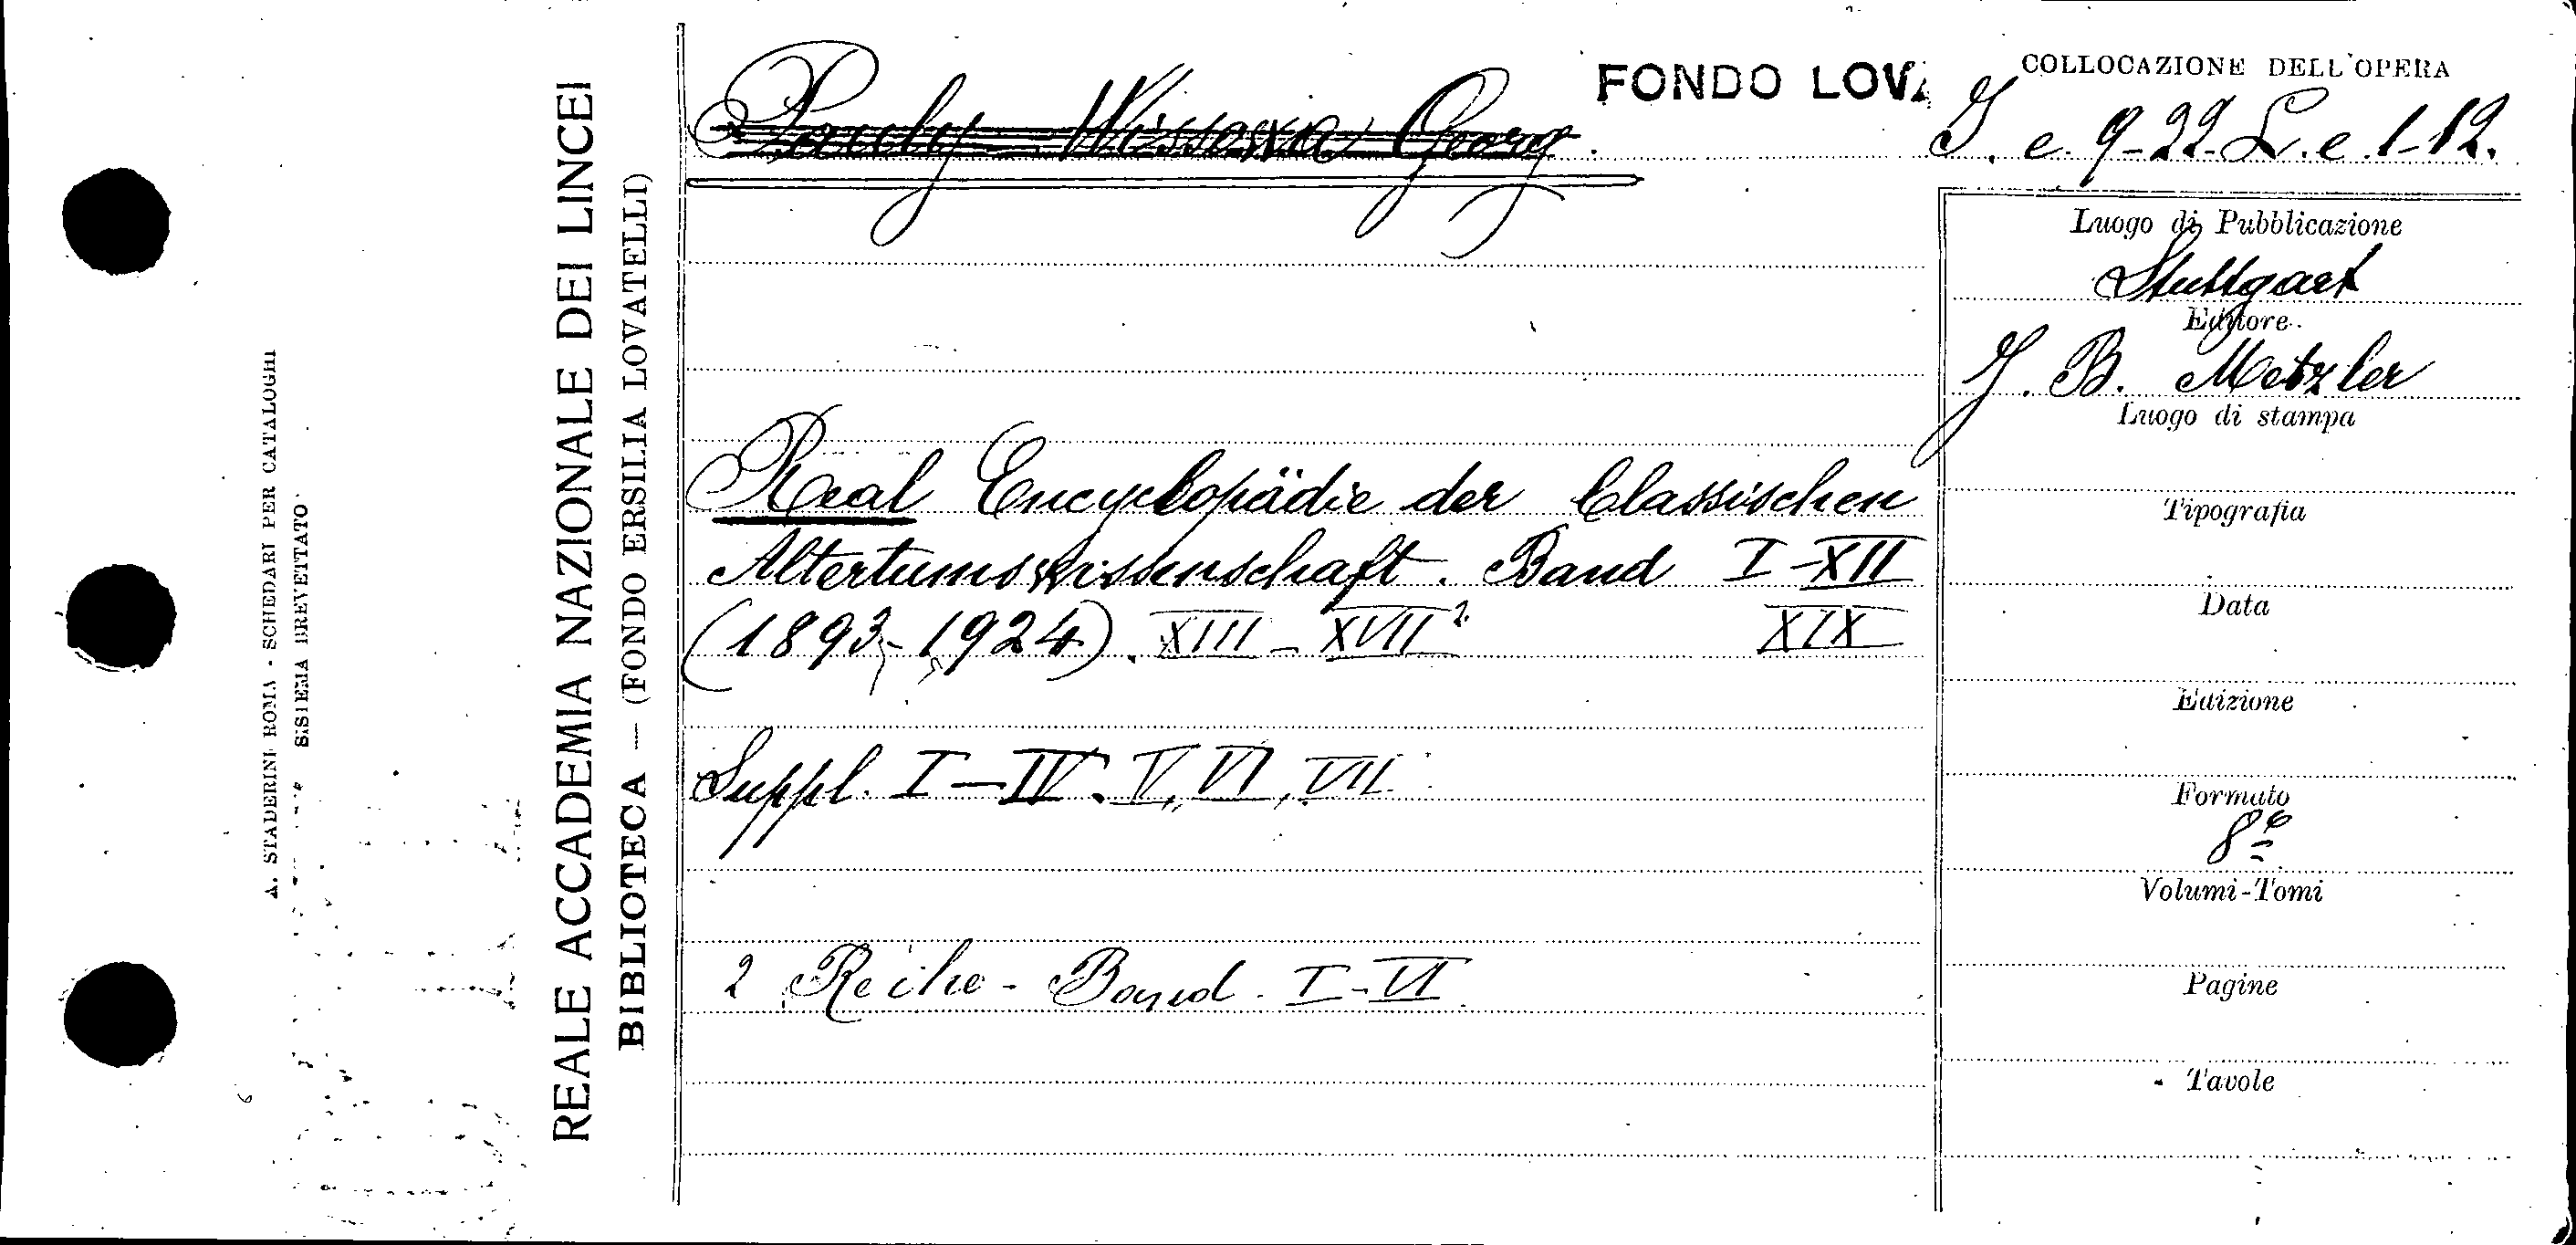 A. STADERINI ROMA - SCHEDARI PER CATALOGHI
SISIEMA BREVETTATO
REALE ACCADEMIA NAZIONALE DEI LINCEI
BIBLIOTECA — (FONDO ERSILIA LOVATELLI)
Pauly-Wissowa Georg.
FONDO LOVA
COLLOCAZIONE DELL'OPERA
I. e. 9-22-L. e. 1-12.
Luogo di Pubblicazione
Stuttgart
Editore
J. B. Metzler
Luogo di stampa
Real Encyclopädie der Classischen
Altertumswissenschaft. Band I-XII
(1893-1924). XIII - XVII² XIX
Suppl. I-IV. V, VI, VII.
2 Reihe - Band. I-VI.
Tipografia
Data
Edizione
Formato
8º
Volumi-Tomi
Pagine
Tavole